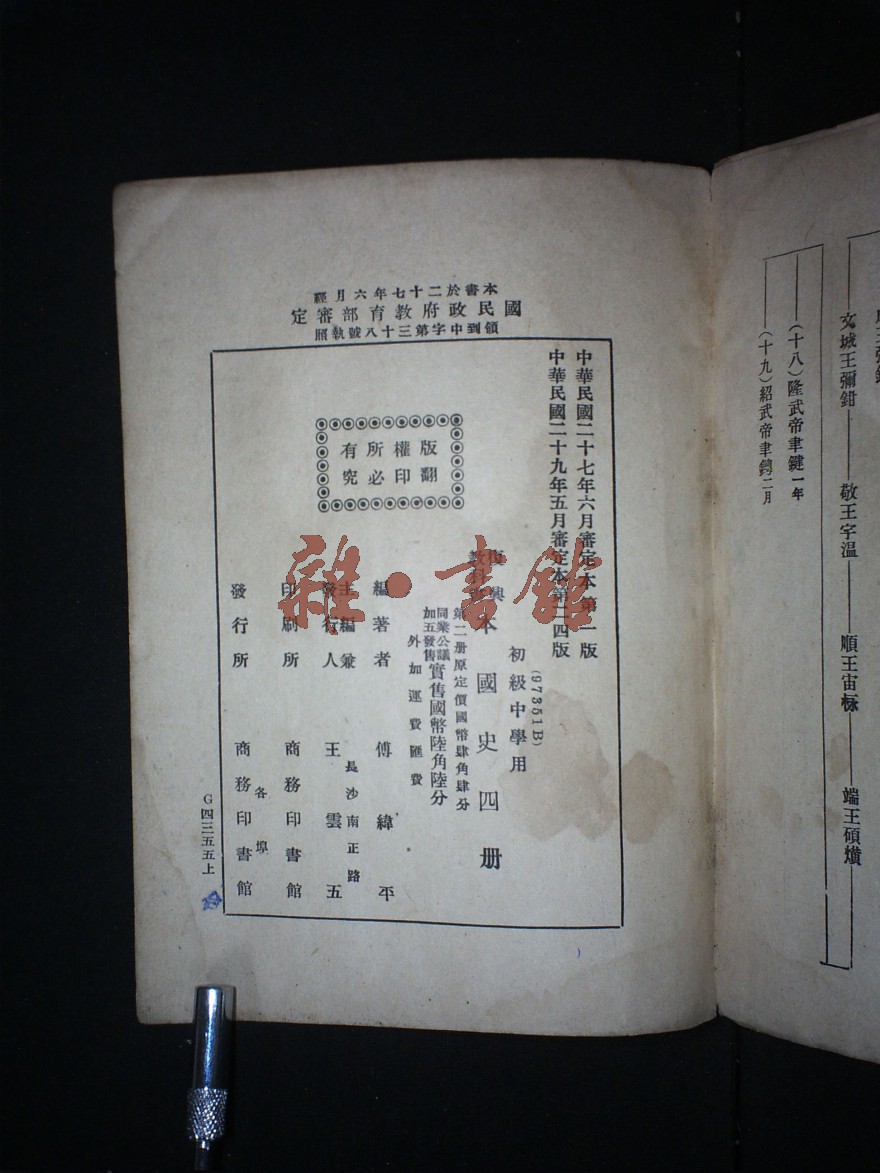 本書於二十七年六月經
國民政府教育部審定
領到中字第三十八號執照
中華民國二十七年六月審定本第一版
中華民國二十九年五月審定本第二四版
(97351B)
初級中學用
復興
教科書
本國史四册
第二册原定價國幣肆角肆分
同業公議
加五發售
實售國幣陸角陸分
外加運費匯費
版權所有
翻印必究
編著者 傅緯平
主編兼
發行人 王雲五
長沙南正路
印刷所 商務印書館
發行所 商務印書館
各埠
G四三五五上
雜·書館
文城王彌鉗
敬王宇溫
順王宙
端王碩熿
(十八)隆武帝聿鍵一年
(十九)紹武帝聿鐭二月